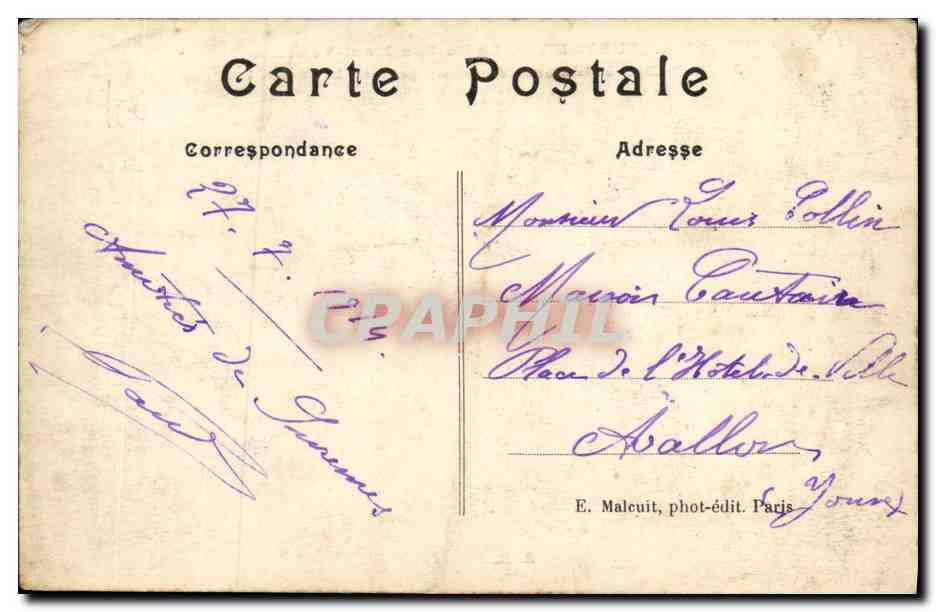 Carte Postale
Correspondance
Adresse
27. 7.
Amitiés de Suresnes
Paul
Monsieur Louis Pollin
Maison
Place de l'Hôtel-de-Ville
Avallon
(Yonne)
E. Malcuit, phot-édit. Paris
CPAPHIL